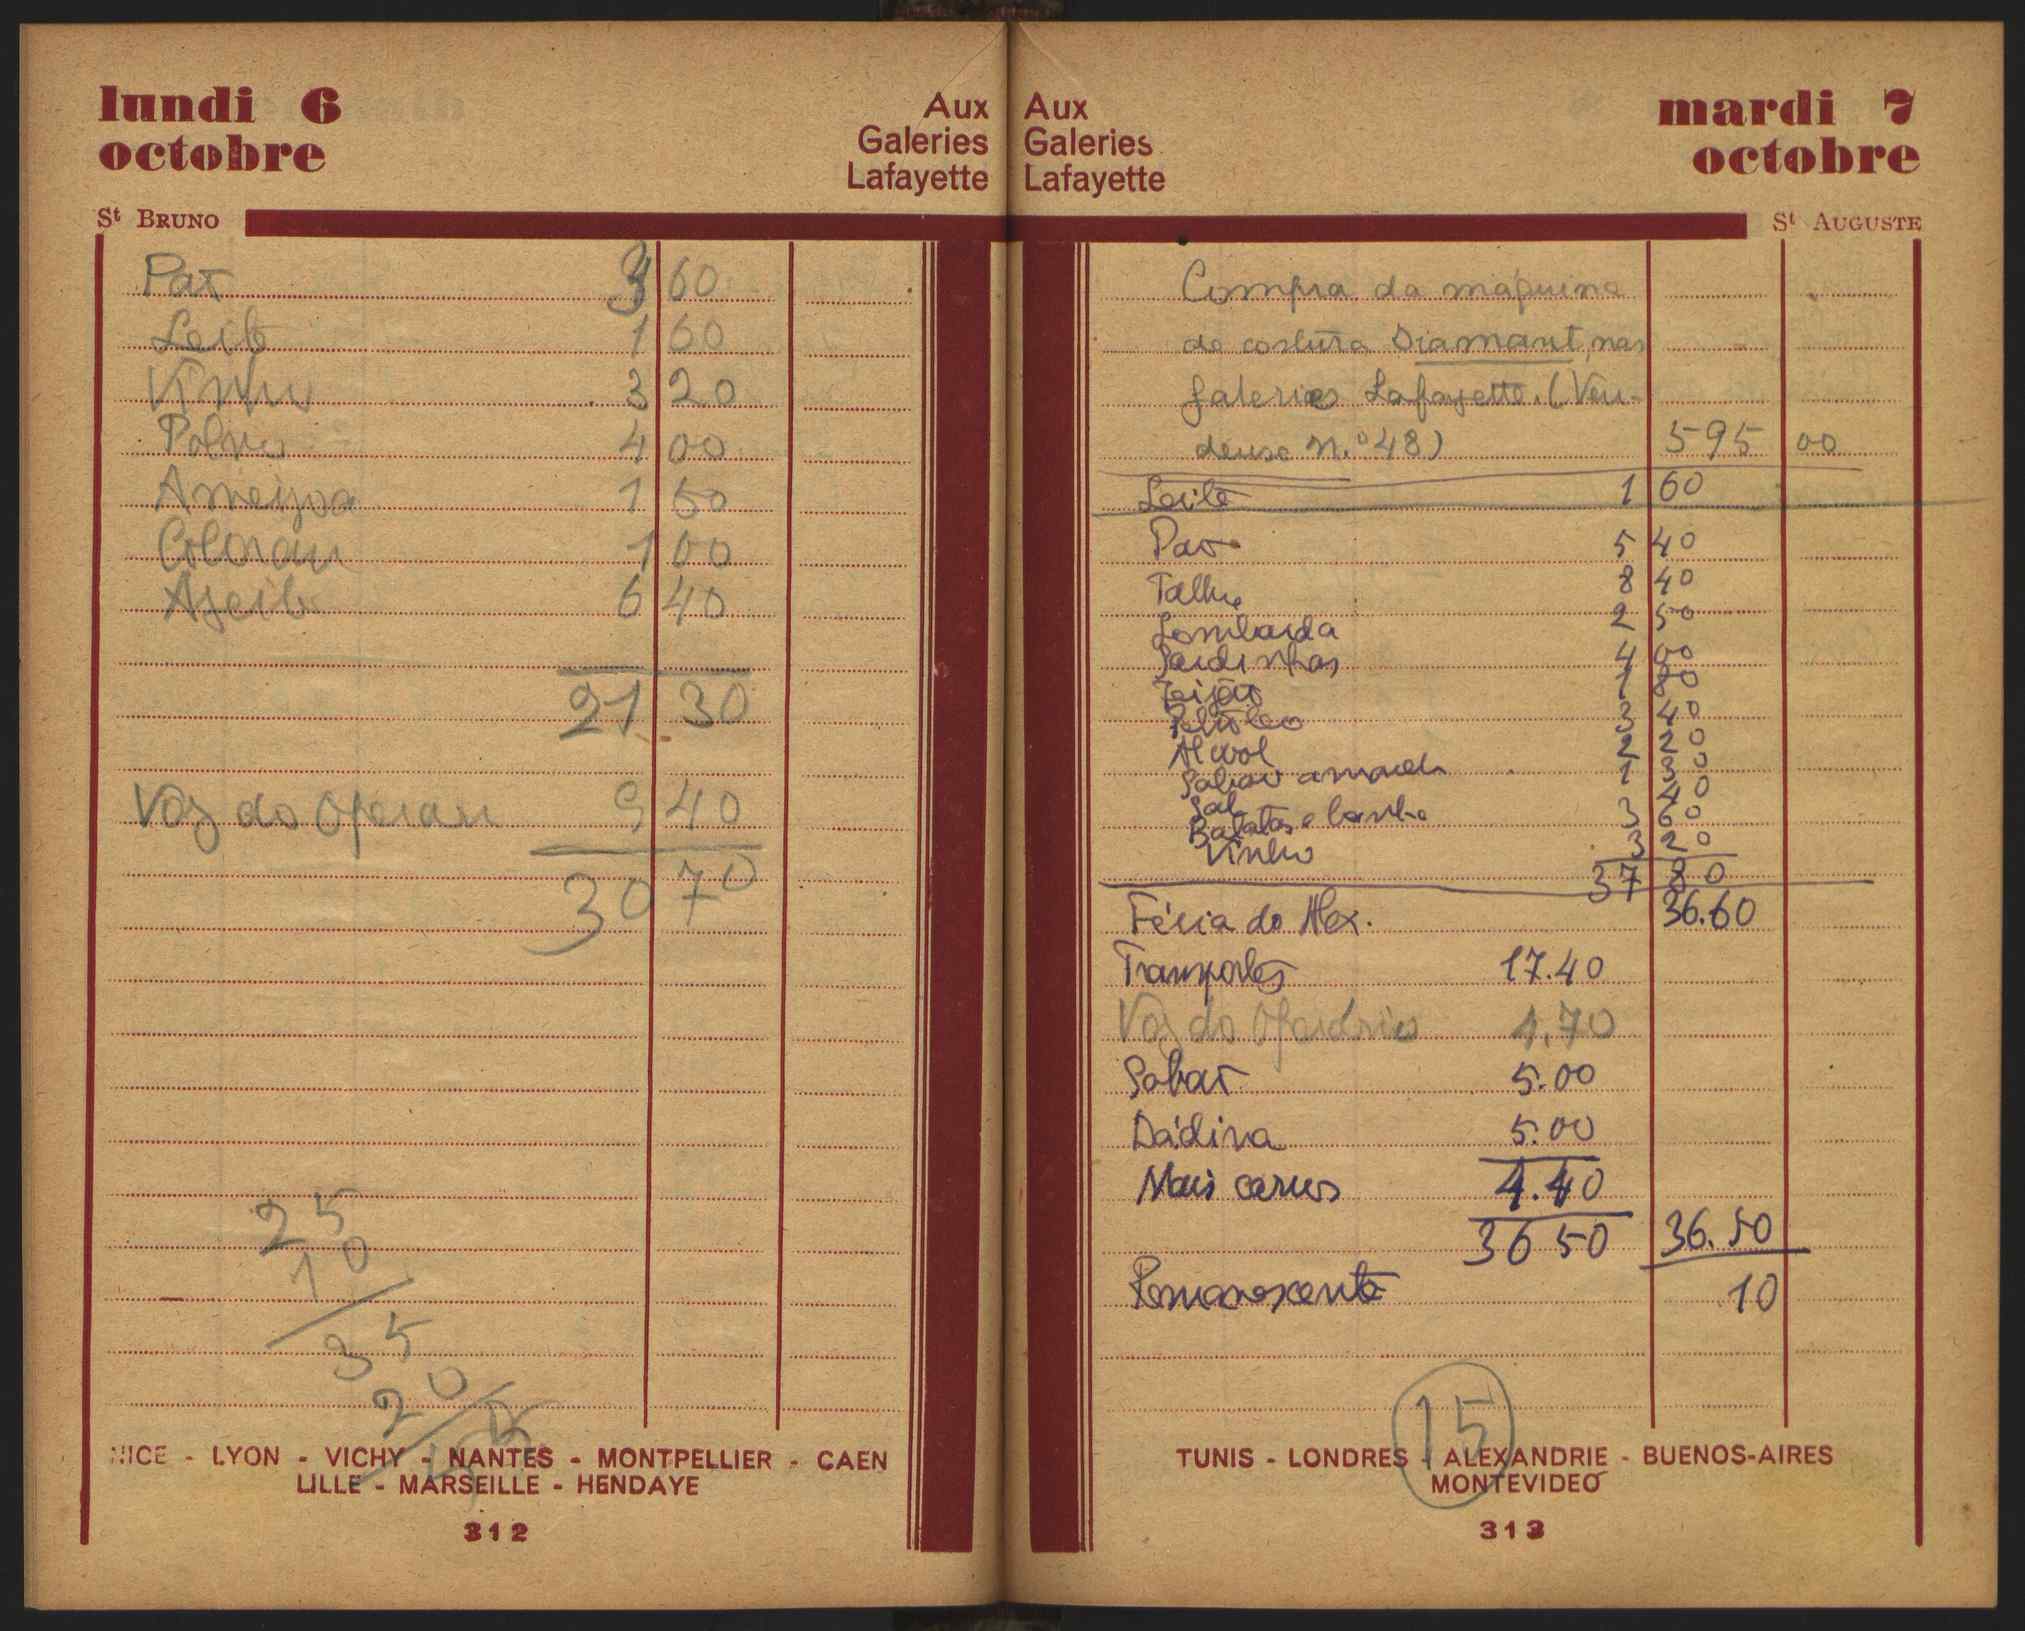 lundi 6
octobre
Aux
Galeries
Lafayette
St BRUNO
Pão 3 60
Leite 1 60
Vinho 3 20
Polvo 4 00
Ameijoa 1 50
Colorau 1 00
Azeite 6 40
21 30
Voz do Operario 9 40
30 70
25
10
35
20
NICE - LYON - VICHY - NANTES - MONTPELLIER - CAEN
LILLE - MARSEILLE - HENDAYE
312
Aux
Galeries
Lafayette
mardi 7
octobre
St AUGUSTE
Compra da máquina
de costura Diamant, nas
Galeries Lafayette. (Ven-
deuse N.º 48) 595 00
Leite 1 60
Pão 5 40
Talho 8 40
Lombarda 2 50
Sardinhas 4 00
Feijão 1 80
Petroleo 3 40
Alcool 2 20
Sabão amarelo 1 30
Sal 40
Batatas e banha 3 60
Vinho 3 20
37 80
Féria do Alex. 36.60
Transportes 17.40
Voz do Operário 4,70
Sabão 5.00
Dádiva 5.00
Mais carros 4.40
36 50 36.50
Remanescente 10
15
TUNIS - LONDRES - ALEXANDRIE - BUENOS-AIRES
MONTEVIDEO
313